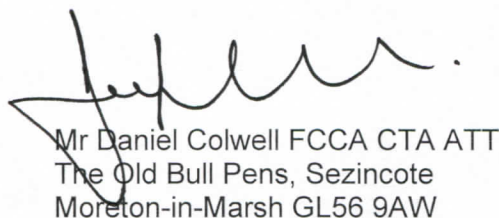 Mr Daniel Colwell FCCA CTA ATT
The Old Bull Pens, Sezincote
Moreton-in-Marsh GL56 9AW